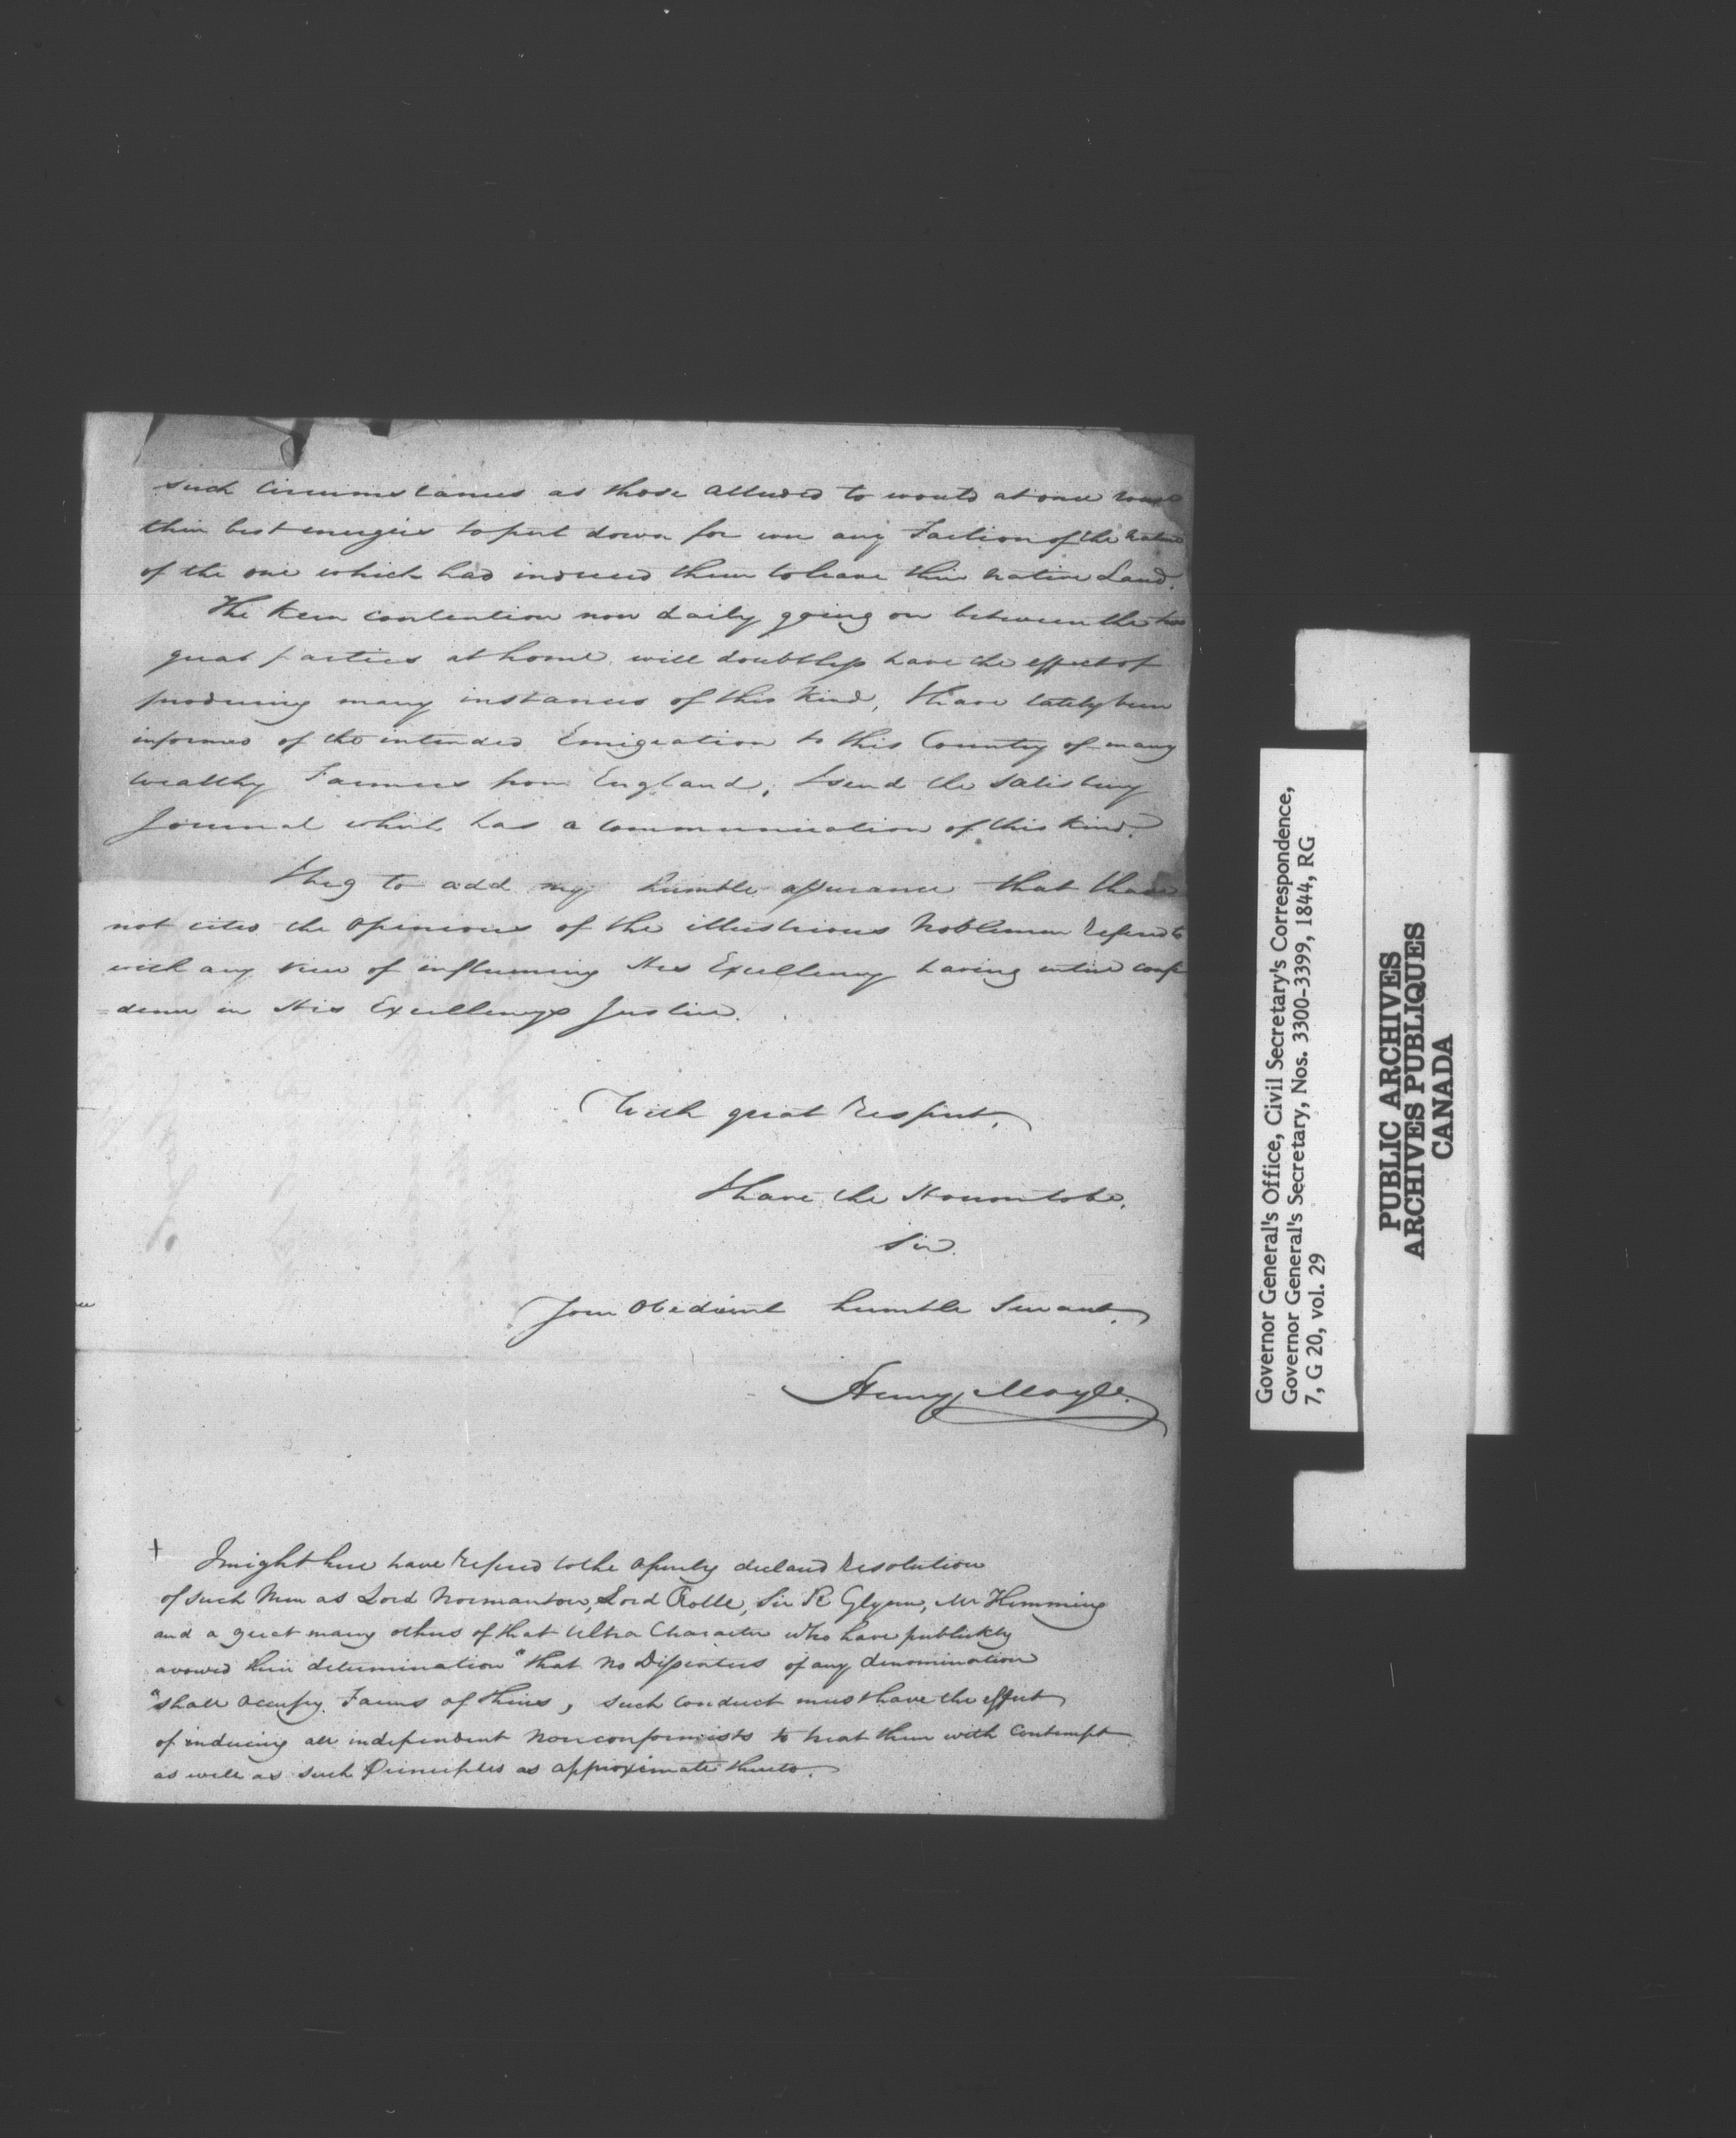 such Circumstances as those alluded to would at once rouse
their best energies to put down for ever any Faction of the nature
of the one which had induced them to leave their native Land.
The keen contention now daily going on between the two
great parties at home, will doubtless have the effect of
producing many instances of this kind, I have lately been
informed of the intended Emigration to this Country of many
wealthy Farmers from England, I send the Salisbury
Journal which has a communication of this kind.
I beg to add my humble assurance that I have
not cited the opinions of the illustrious Nobleman referred to
with any view of influencing His Excellency having entire conf
=dence in His Excellencys Justice.
With great Respect,
I have the Honour to be,
Sir.
Your Obedient humble Servant,
Henry Moyle.
+ I might here have refered to the openly declared resolution
of such Men as Lord Normanton, Lord Rolle, Sir R Glynn, Mr Hemming
and a great many others of that Ultra Character who have publickly
avowed their determination "that no Dissenters of any denomination
"shall occupy Farms of theirs, such conduct must have the effect
of inducing all independent Nonconformists to treat them with Contempt
as well as such Principles as approximate thereto.
Governor General's Office, Civil Secretary's Correspondence,
Governor General's Secretary, Nos. 3300-3399, 1844, RG
7, G 20, vol. 29
PUBLIC ARCHIVES
ARCHIVES PUBLIQUES
CANADA